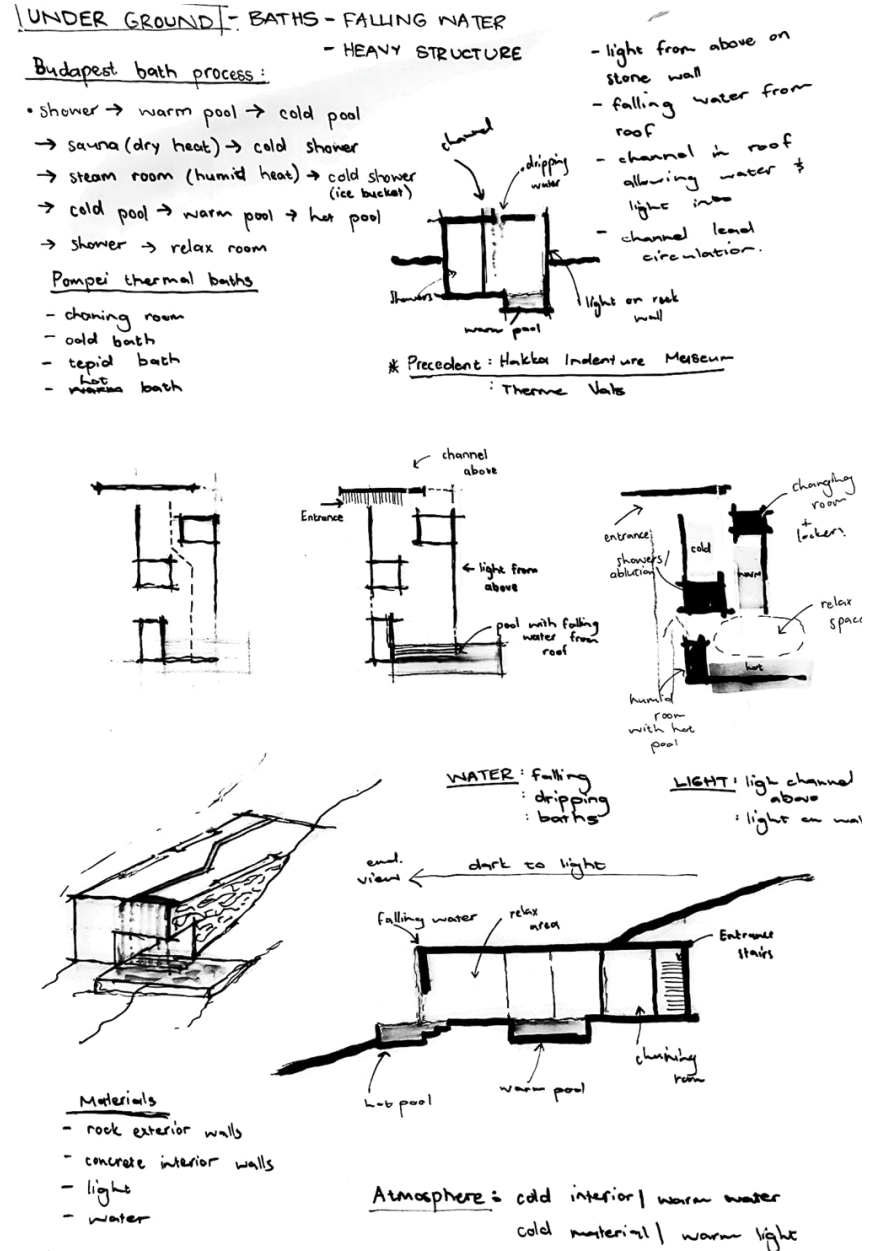 UNDER GROUND - BATHS - FALLING WATER
- HEAVY STRUCTURE
Budapest bath process :
• shower → warm pool → cold pool
→ sauna (dry heat) → cold shower
→ steam room (humid heat) → cold shower
(ice bucket)
→ cold pool → warm pool → hot pool
→ shower → relax room
Pompei thermal baths
- chaning room
- cold bath
- tepid bath
- hot bath
- light from above on
stone wall
- falling water from
roof
- channel in roof
allowing water &
light into
- channel lead
circulation.
channel
dripping
water
showers
warm pool
light on rock
wall
* Precedent : Hakka Indenture Museum
: Therme Vals
channel
above
Entrance
← light from
above
pool with falling
water from
roof
changing
room
+
lockers
entrance
showers/
ablution
cold
warm
relax
space
hot
humid
room
with hot
pool
WATER : falling
: dripping
: baths
LIGHT : ligh channel
above
: light on wal
end.
view
dark to light
falling water
relax
area
Entrance
stairs
hot pool
warm pool
chaning
room
Materials
- rock exterior walls
- concrete interior walls
- light
- water
Atmosphere : cold interior / warm water
cold material / warm light